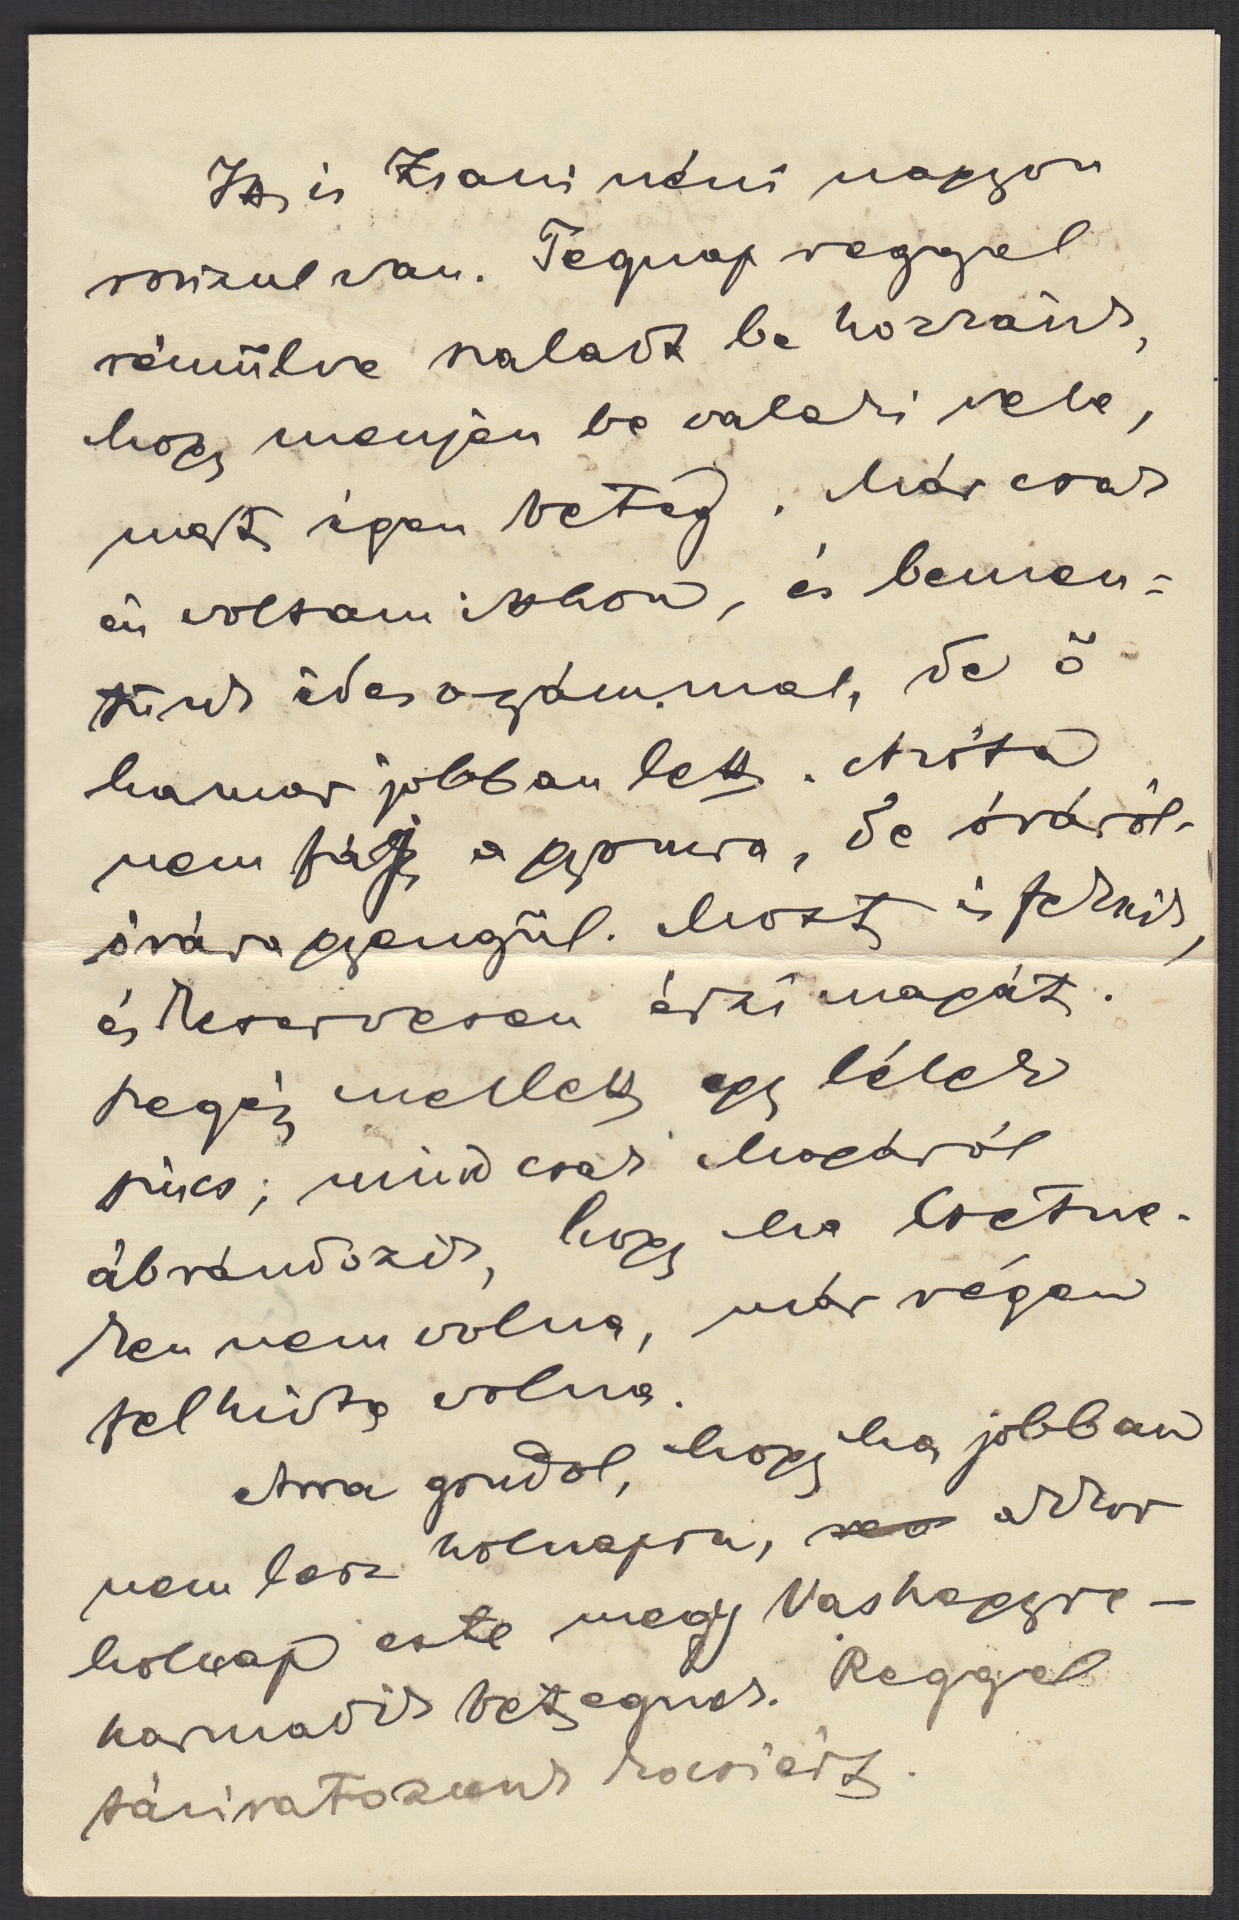 Itt is Zsani néni nagyon
rosszul van. Tegnap reggel
rémülve szaladt be hozzánk,
hogy menjen be valaki vele,
mert igen beteg. Már csak
én voltam itthon, és bemen=
tünk édes anyámmal, de ő
hamar jobban lett. Azóta
nem fáj a gyomra, de óráról-
órára gyengül. Most is fekszik,
és keservesen érzi magát.
Segéj mellett egy lélek
sincs; mind csak Magáról
ábrándozik, hogy ha Csetne-
ken nem volna, már régen
felhívta volna.
Arra gondol, hogy ha jobban
nem lesz holnapra, akkor
holnap este megy Vashegyre —
harmadik betegnek. Reggel
táviratozunk kocsiért.